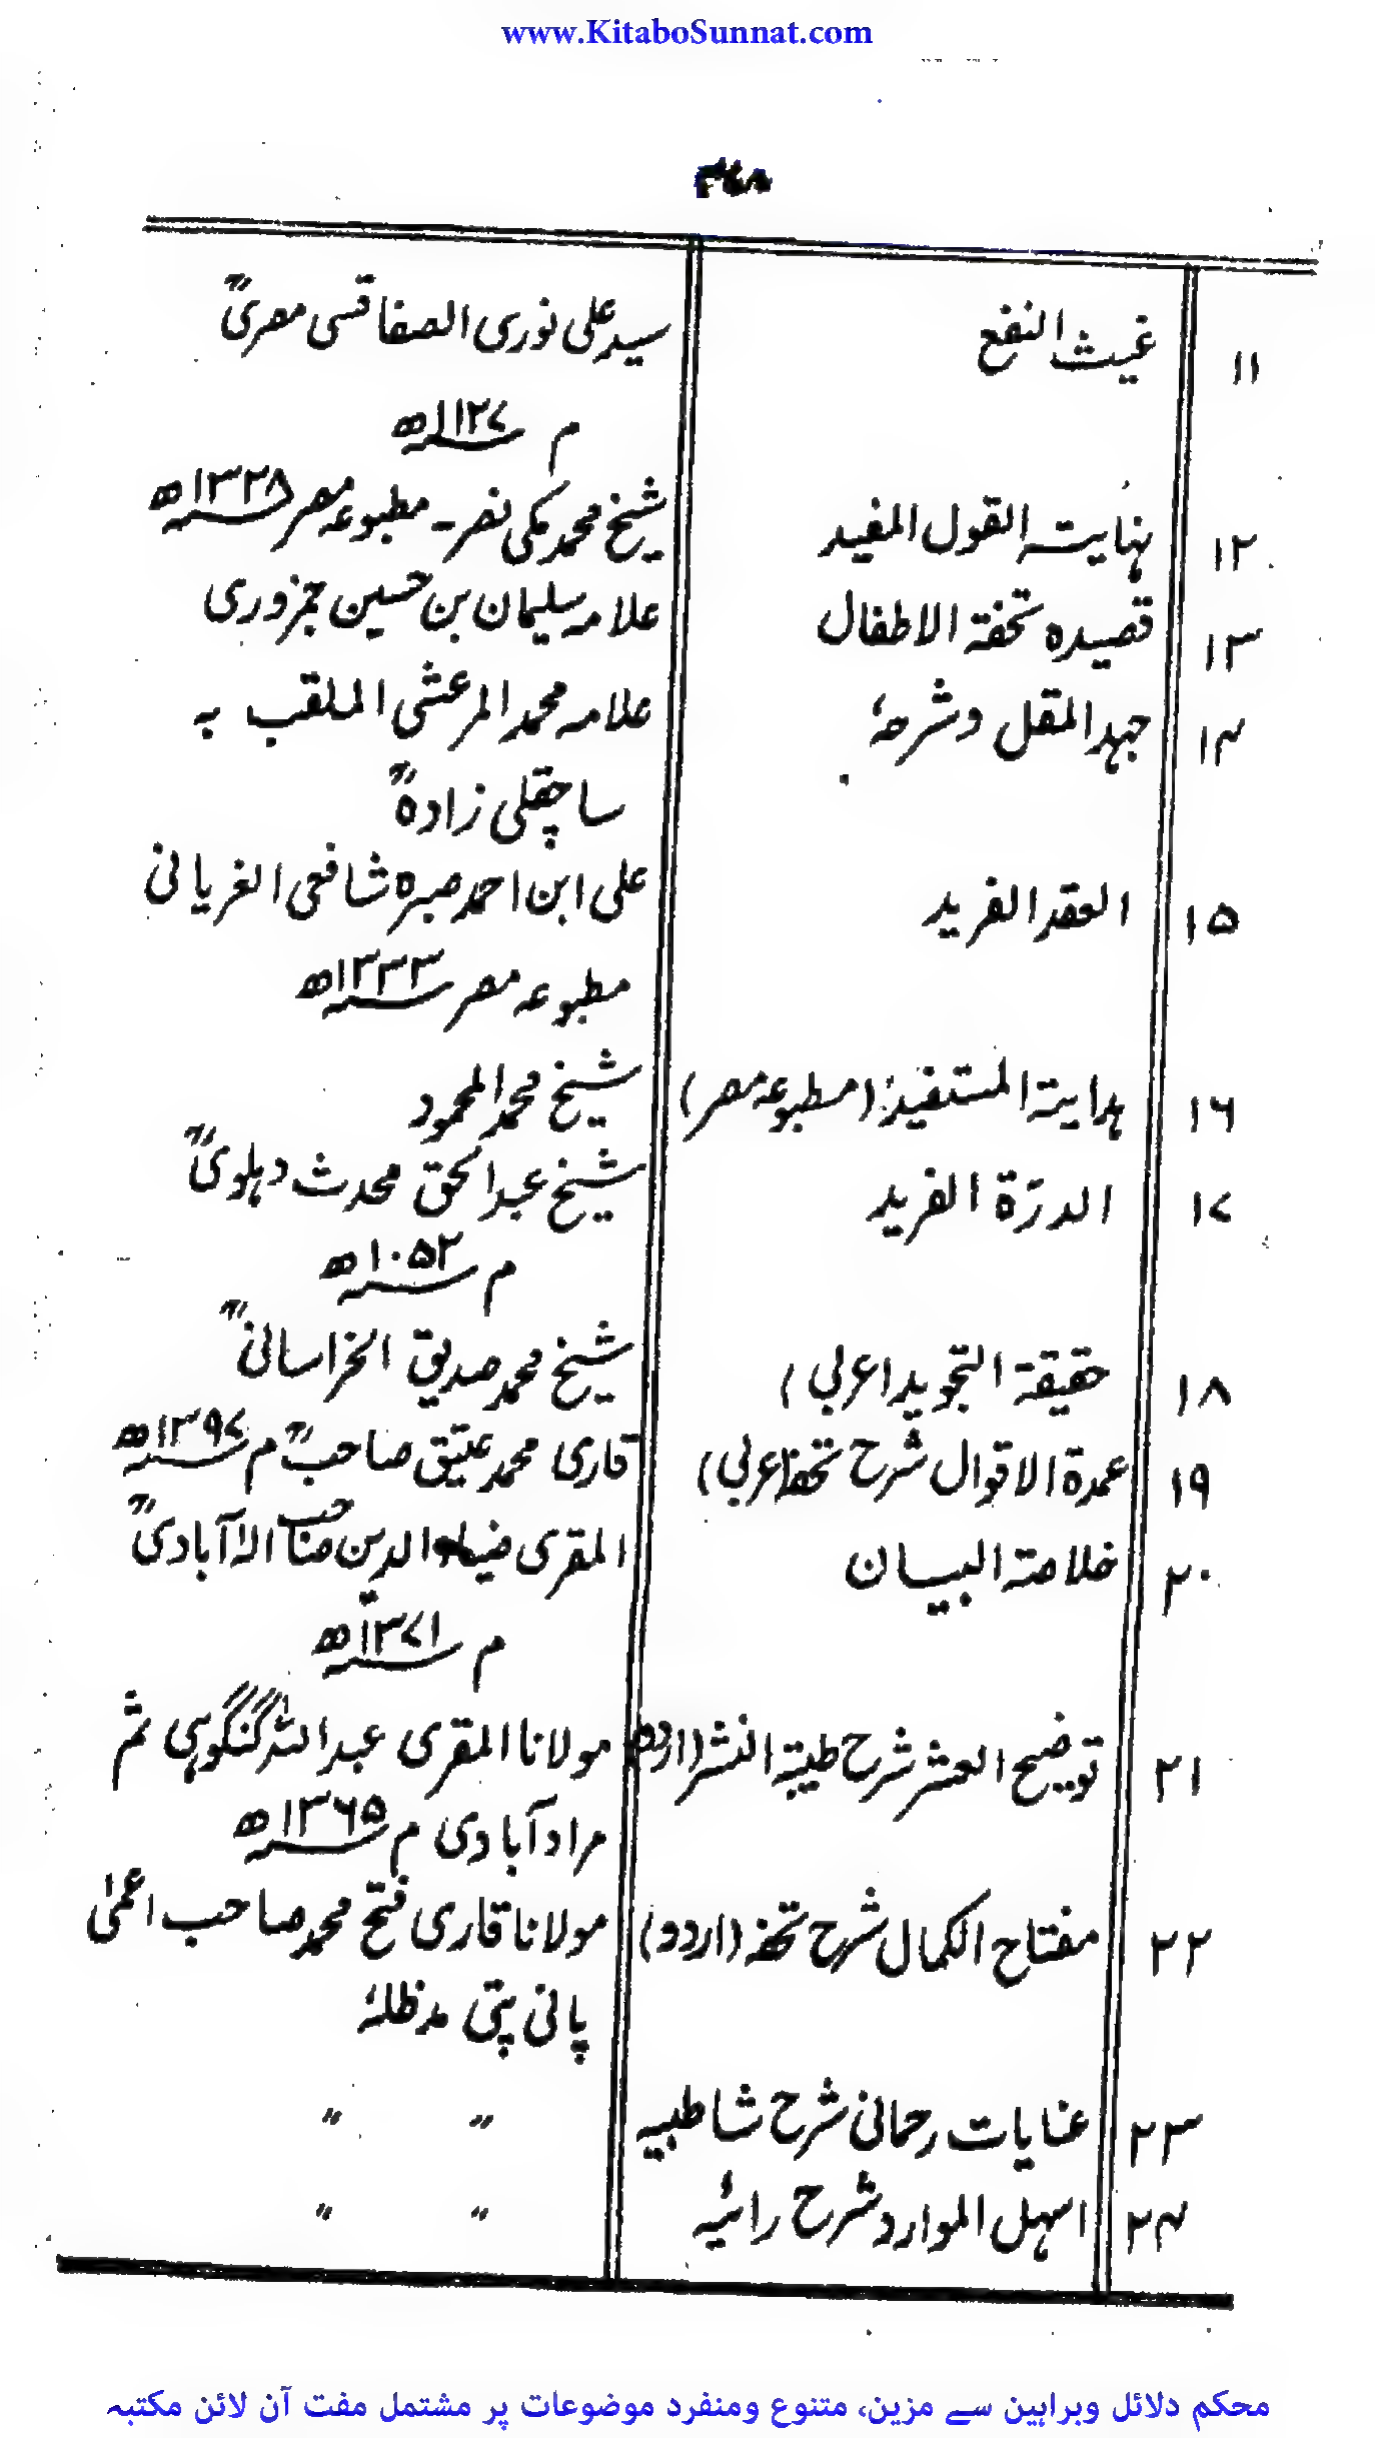 www.KitaboSunnat.com
۳۶۸
۱۱ غیث النفع سید علی نوری الصفاقسی مصریؒ
م ۱۱۲۷ھ
۱۲ نہایتہ القول المفید شیخ محمد مکی نصر۔ مطبوعہ مصر ۱۳۳۸ھ
۱۳ قصیدہ تحفۃ الاطفال علامہ سلیمان بن حسین جمزوری
۱۴ جہد المقل وشرحہٗ علامہ محمد المرعشی الملقب بہ
ساچقلی زادہؒ
۱۵ العقد الفرید علی ابن احمد صبرہ شافعی الغریانی
مطبوعہ مصر ۱۳۳۳ھ
۱۶ ہدایتہ المستفید (مطبوعہ مصر) شیخ محمد المحمود
۱۷ الدرّۃ الفرید شیخ عبدالحق محدث دہلویؒ
م ۱۰۵۲ھ
۱۸ حقیقۃ التجوید (عربی) شیخ محمد صدیق الخراسانیؒ
۱۹ عمدۃ الاقوال شرح تحفہ (عربی) قاری محمد عتیق صاحبؒ م ۱۳۹۷ھ
۲۰ خلاصتہ البیان المقری ضیاء الدین صاحب الہٰ آبادیؒ
م ۱۳۷۱ھ
۲۱ توضیح العشر شرح طیبۃ النشر (اردو) مولانا المقری عبداللہ گنگوہی ثم
مرادآبادی م ۱۳۶۵ھ
۲۲ مفتاح الکمال شرح تحفہ (اردو) مولانا قاری فتح محمد صاحب اعمیٰ
پانی پتی مدظلہٗ
۲۳ عنایات رحمانی شرح شاطبیہ 〃 〃
۲۴ اسہل الموارد شرح رائیہ 〃 〃
محکم دلائل وبراہین سے مزین، متنوع ومنفرد موضوعات پر مشتمل مفت آن لائن مکتبہ